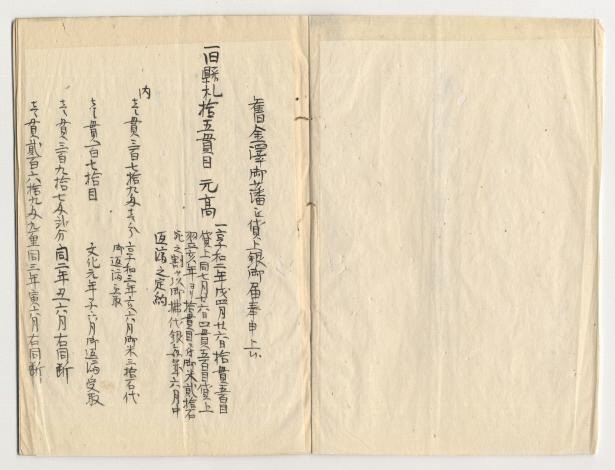 舊金澤御藩正貸上銀御届奉申上候
一旧縣札拾五貫目 元高
一享和二年戌四月廿六日拾貫五百目
貸上同七月廿六日四貫五百目貸上
翌亥年ヨリ拾貫目ニ付御米貳拾石
宛之割ヲ以御拂代銀毎年六月中
返済之定約
内
壱貫三百七拾九匁壱分 享和三年亥六月御米三拾石代
御返済受取
壱貫百七拾目 文化元年子六月御返済受取
壱貫三百九拾七匁弐分 同二年丑六月右同断
壱貫貳百六拾九匁九厘 同三年寅六月右同断